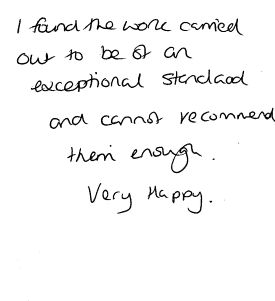 I found the work carried
out to be of an
exceptional standard
and cannot recommend
them enough.
Very Happy.